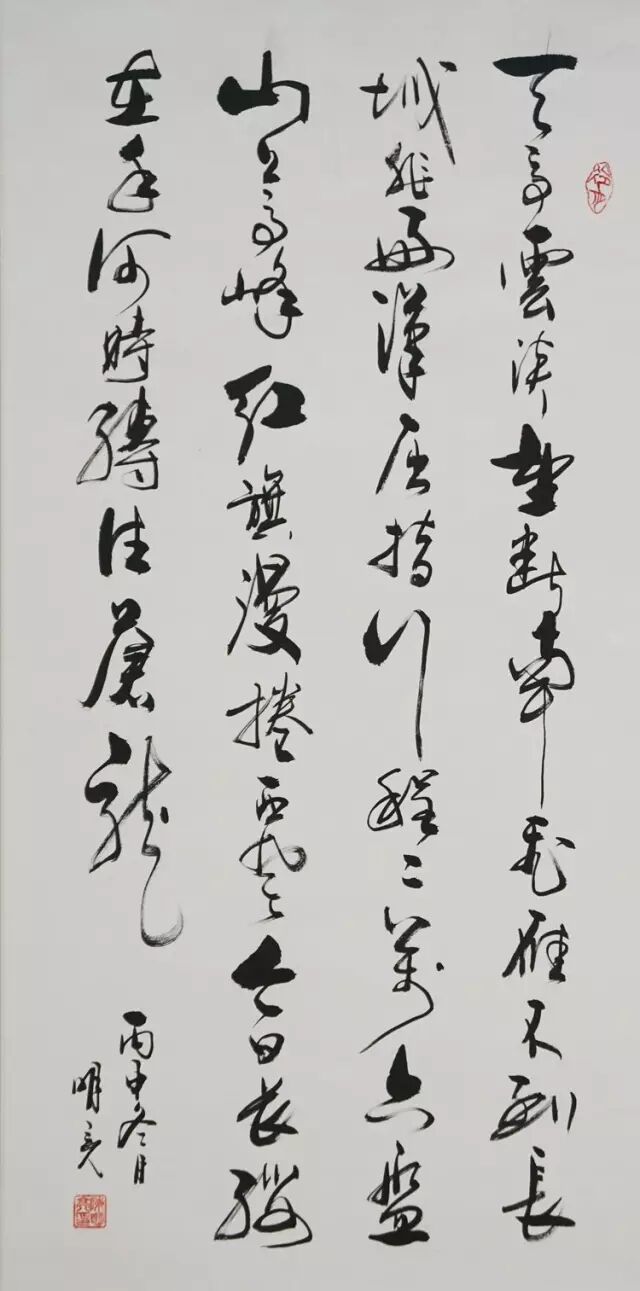 天高雲淡望斷南飛雁不到長
城非好漢屈指行程二萬六盤
山上高峰紅旗漫捲西風今日長纓
在手何時縛住蒼龍
丙申冬月
明亮